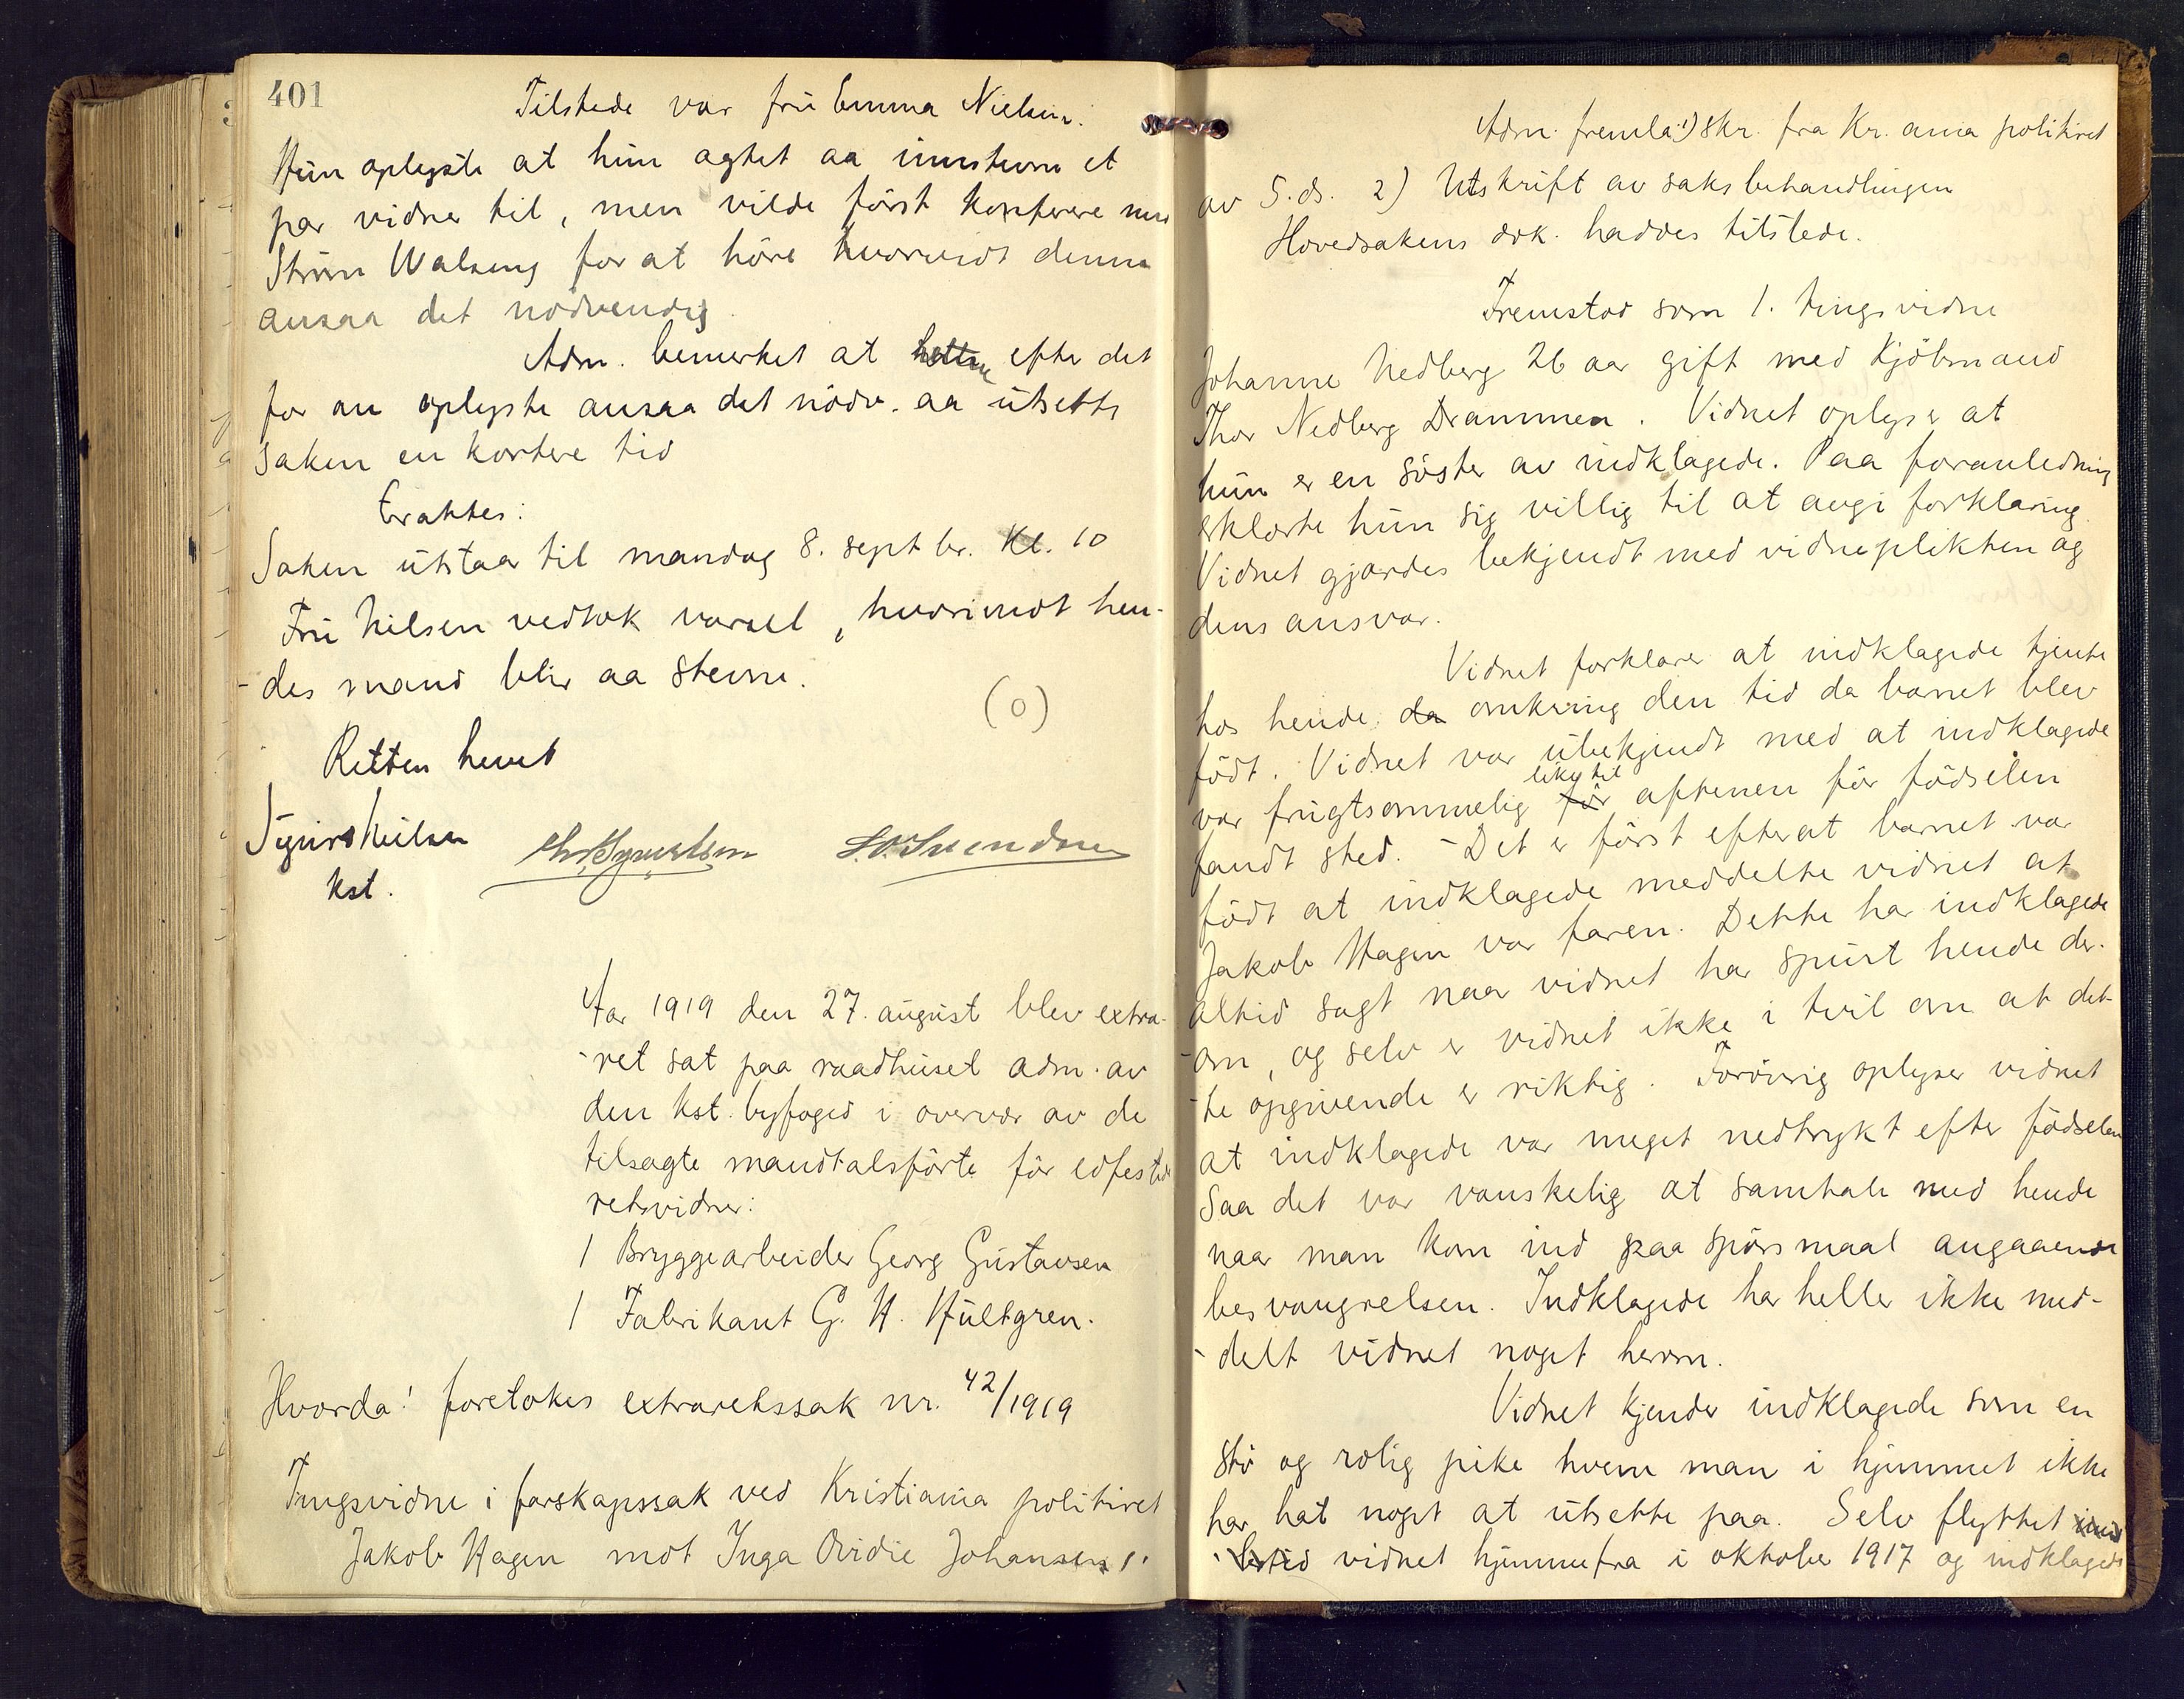 401
Tilstede var fru Emma Nielsen.
Hun oplyste at hun agtet aa innstevne et
par vidner til, men vilde først konferere med
Strøm Walseng for at høre hvorvidt denne
ansaa det nødvendig
Adm. bemerket at efter det
for an oplyste ansaa det nødv. aa utsette
saken en kortere tid
Eragtes:
Saken utstaar til mandag 8. septbr. Kl. 10
Fru Nilsen vedtok varsel, hvorimot hen-
-des mand blir aa stevne.
(0)
Retten hevet
Sigurd Neilsen
kst.
Aar 1919 den 27. august blev extra-
-ret sat paa raadhuset adm. av
den kst. byfoged i overvær av de
tilsagte mandtalsførte før edfestede
retsvidner:
1 Bryggearbeider Georg Gustavsen
1 Fabrikant G. H. Hültgren.
Hvorda! foretokes extraretssak nr. 42/1919
Tingsvidne i farskapssak ved Kristiania politiret
Jakob Hagen mot Inga Ovidie Johansen.
Adm. fremla: 1) skr. fra Kr.ania politiret
av 5. ds. 2) Utskrift av saksbehandlingen
Hovedsakens dok. haddes tilstede.
Fremstod som 1. tingsvidne
Johanne Nedberg 26 aar gift med Kjøbmand
Thor Nedberg Drammen. Vidnet oplyser at
hun er en søster av indklagede. Paa foranledning
erklærte hun sig villig til at avgi forklaring.
Vidnet gjordes bekjendt med vidneplikten og
dens ansvar.
Vidnet forklarer at indklagede tjente
hos hende da omkring den tid da barnet blev
født. Vidnet var ubekjendt med at indklagede
like til
var frugtsommelig før aftenen før fødselen
fandt sted. - Det er først efterat barnet var
født at indklagede meddelte vidnet at
Jakob Hagen var faren. Dette har indklagede
altid sagt naar vidnet har spurt hende der-
-om, og selv er vidnet ikke i tvil om at det-
-te opgivende er riktig. Forøvrig oplyser vidnet
at indklagede var meget nedtrykt efter fødselen
saa det var vanskelig at samtale med hende
naar man kom ind paa spørsmaal angaaende
besvangrelsen. Indklagede har heller ikke med-
-delt vidnet noget herom.
Vidnet kjender indklagede som en
stø og rolig pike hvem man i hjemmet ikke
har hat noget at utsette paa. Selv flyttet
vidnet hjemmefra i oktober 1917 og indklagede